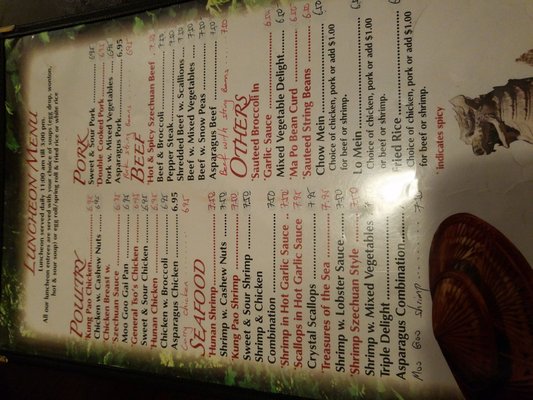 LUNCHEON MENU
Luncheon served daily 11:00 am till 3:00 pm.
All our luncheon entrees are served with your choice of soups (egg drop, wonton,
hot & sour soup) or egg roll/spring roll & fried rice or white rice
POULTRY
*Kung Pao Chicken 6.95
Chicken w. Cashew Nuts 6.95
Chicken Breast w.
Satay Sauce 6.95
Moo Goo Gai Pan 6.95
General Tso's Chicken 6.95
Sweet & Sour Chicken 6.95
*Hunan Chicken 6.95
Chicken w. Broccoli 6.95
Asparagus Chicken 6.95
Curry chicken 6.95
SEAFOOD
*Hunan Shrimp 7.50
Shrimp w. Cashew Nuts 7.50
*Kung Pao Shrimp 7.50
Sweet & Sour Shrimp 7.50
Shrimp & Chicken
Combination 7.50
*Shrimp in Hot Garlic Sauce 7.50
*Scallops in Hot Garlic Sauce 7.95
Crystal Scallops 7.95
*Treasures of the Sea 7.95
Shrimp w. Lobster Sauce 7.50
*Shrimp Szechuan Style 7.50
Shrimp w. Mixed Vegetables 7.50
Triple Delight
Asparagus Combination
Moo Goo Shrimp 7.50
PORK
Sweet & Sour Pork 6.95
Double Cooked Pork 6.95
Pork w. Mixed Vegetables 6.95
Asparagus Pork 6.95
String Beans 6.95
BEEF
*Hot & Spicy Szechuan Beef 7.50
Beef & Broccoli 7.50
Pepper Steak 7.50
Shredded Beef w. Scallions 7.50
Beef w. Mixed Vegetables 7.50
Beef w. Snow Peas 7.50
Asparagus Beef 7.50
Beef with string Beans 7.50
OTHERS
*Sauteed Broccoli In
Garlic Sauce 6.50
Mixed Vegetable Delight 6.50
*Ma Po Bean Curd 6.50
*Sauteed String Beans 6.50
Chow Mein 6.50
Choice of chicken, pork or add $1.00
for beef or shrimp.
Lo Mein 6.50
Choice of chicken, pork or add $1.00
for beef or shrimp.
Fried Rice
Choice of chicken, pork or add $1.00
for beef or shrimp.
*indicates spicy